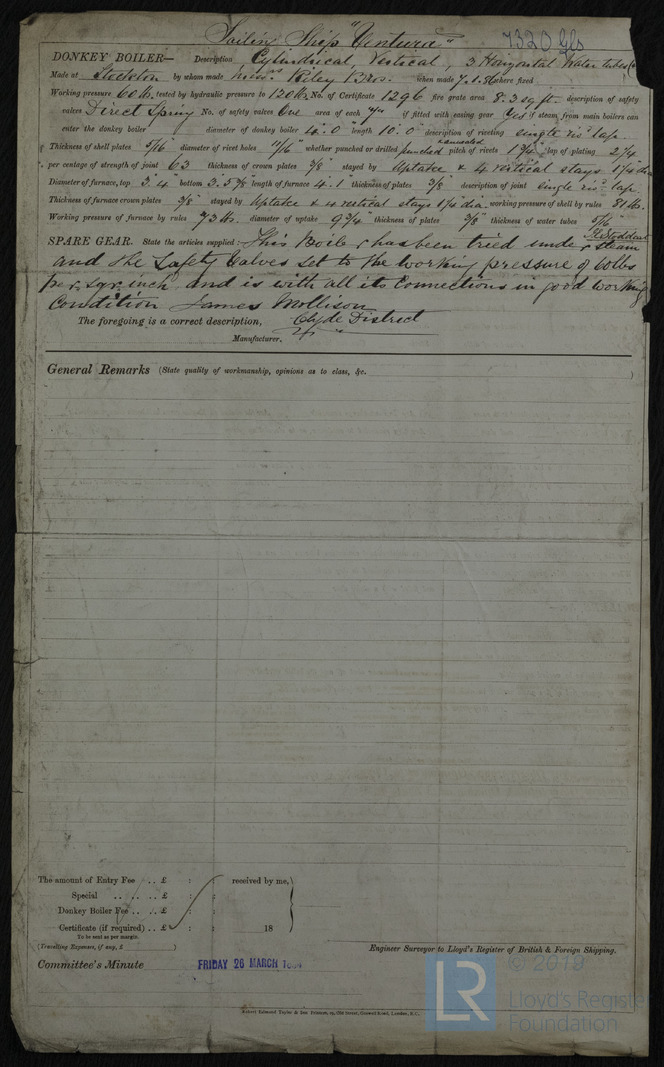 Sailing Ship "Ventura" 7320 Gls
DONKEY BOILER— Description Cylindrical, Vertical, 3 Horizontal Water tubes
Made at Stockton by whom made Messrs Riley Bros. when made 7.1.86 where fixed
Working pressure 60 lb. tested by hydraulic pressure to 120 lb. No. of Certificate 1296 fire grate area 8.3 sq ft. description of safety
valves Direct Spring No. of safety valves One area of each if fitted with easing gear Yes if steam from main boilers can
enter the donkey boiler diameter of donkey boiler 4'.0" length 10'.0" description of riveting single riv. lap.
Thickness of shell plates 5/16" diameter of rivet holes 11/16" whether punched or drilled punched annealed pitch of rivets 1 3/4" lap of plating 2 1/4
per centage of strength of joint 63 thickness of crown plates 3/8" stayed by Uptake & 4 vertical stays 1 1/4 dia
Diameter of furnace, top 3'.4" bottom 3'.5 7/8" length of furnace 4'.1" thickness of plates 3/8 description of joint single riv. lap.
Thickness of furnace crown plates 3/8" stayed by Uptake & 4 vertical stays 1 1/4 dia. working pressure of shell by rules 81 lb.
Working pressure of furnace by rules 73 lb. diameter of uptake 9 3/4" thickness of plates 3/8" thickness of water tubes 5/16
SPARE GEAR. State the articles supplied: This Boiler has been tried under steam
and the Safety Valves set to the working pressure of 60lbs
per sqr inch and is with all its connections in good working
condition James Mollison
The foregoing is a correct description, Clyde District
Manufacturer.
General Remarks (State quality of workmanship, opinions as to class, &c. )
The amount of Entry Fee .. £ : : received by me,
Special .. .. .. £ : :
Donkey Boiler Fee .. .. £ : :
Certificate (if required) .. £ : : 18
To be sent as per margin.
(Travelling Expenses, if any, £ )
Engineer Surveyor to Lloyd's Register of British & Foreign Shipping.
Committee's Minute FRIDAY 26 MARCH
LR © 2019
Lloyd's Register
Foundation